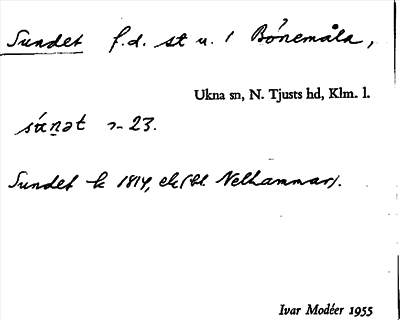 Sundet f.d. st u. / Bönemåla,
Ukna sn, N. Tjusts hd, Klm. l.
súnət 2-23.
Sundet k 1814, ek (bl Nelhammar).
Ivar Modéer 1955